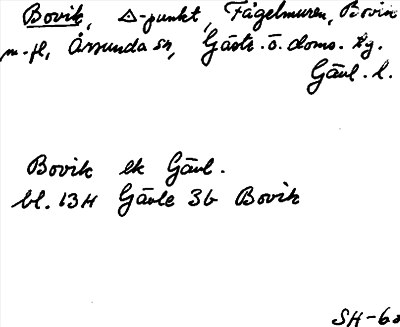 Bovik, △-punkt, Fågelmuren, Bovik
m. fl, Årsunda sn, Gästr. ö. doms. tg.
Gävl. l.
Bovik ek Gävl.
bl. 13H Gävle 3b Bovik
SH-60